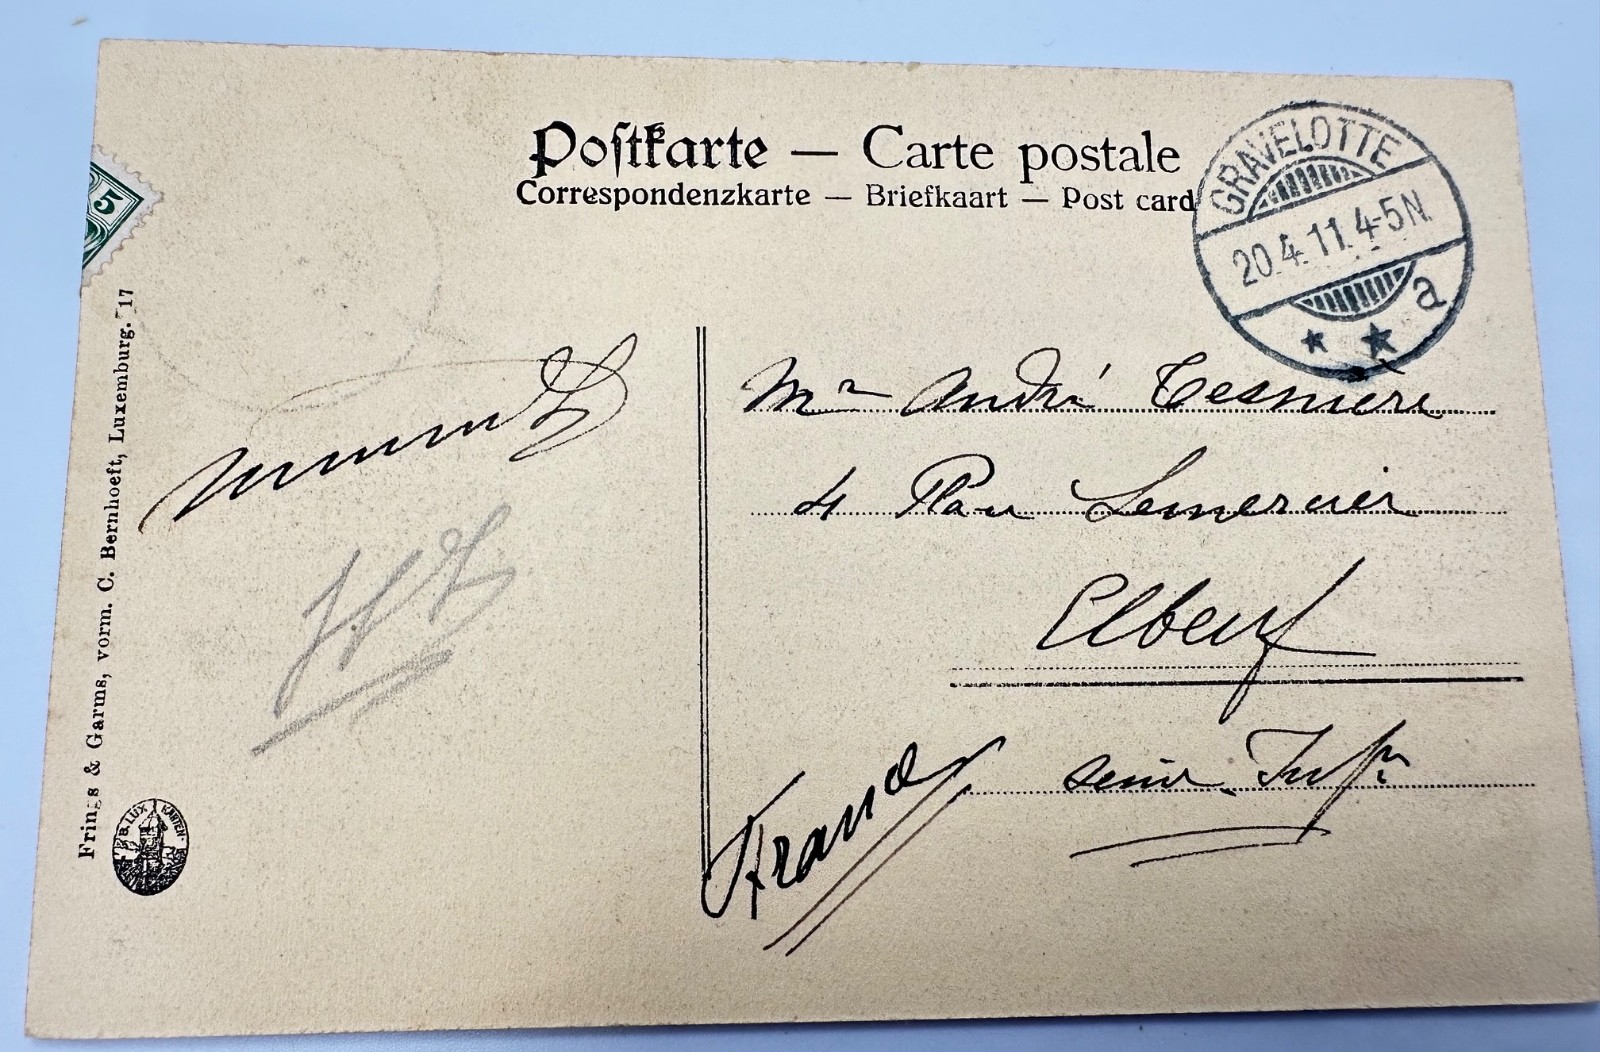 Postkarte — Carte postale
Correspondenzkarte — Briefkaart — Post card
GRAVELOTTE
20.4.11.4-5N.
a
5
Mr André Tesnière
4 Place Lemercier
Elbeuf
Seine Infre
France
Frings & Garms, vorm. C. Bernhoeft, Luxemburg. 17
LUX KARTEN